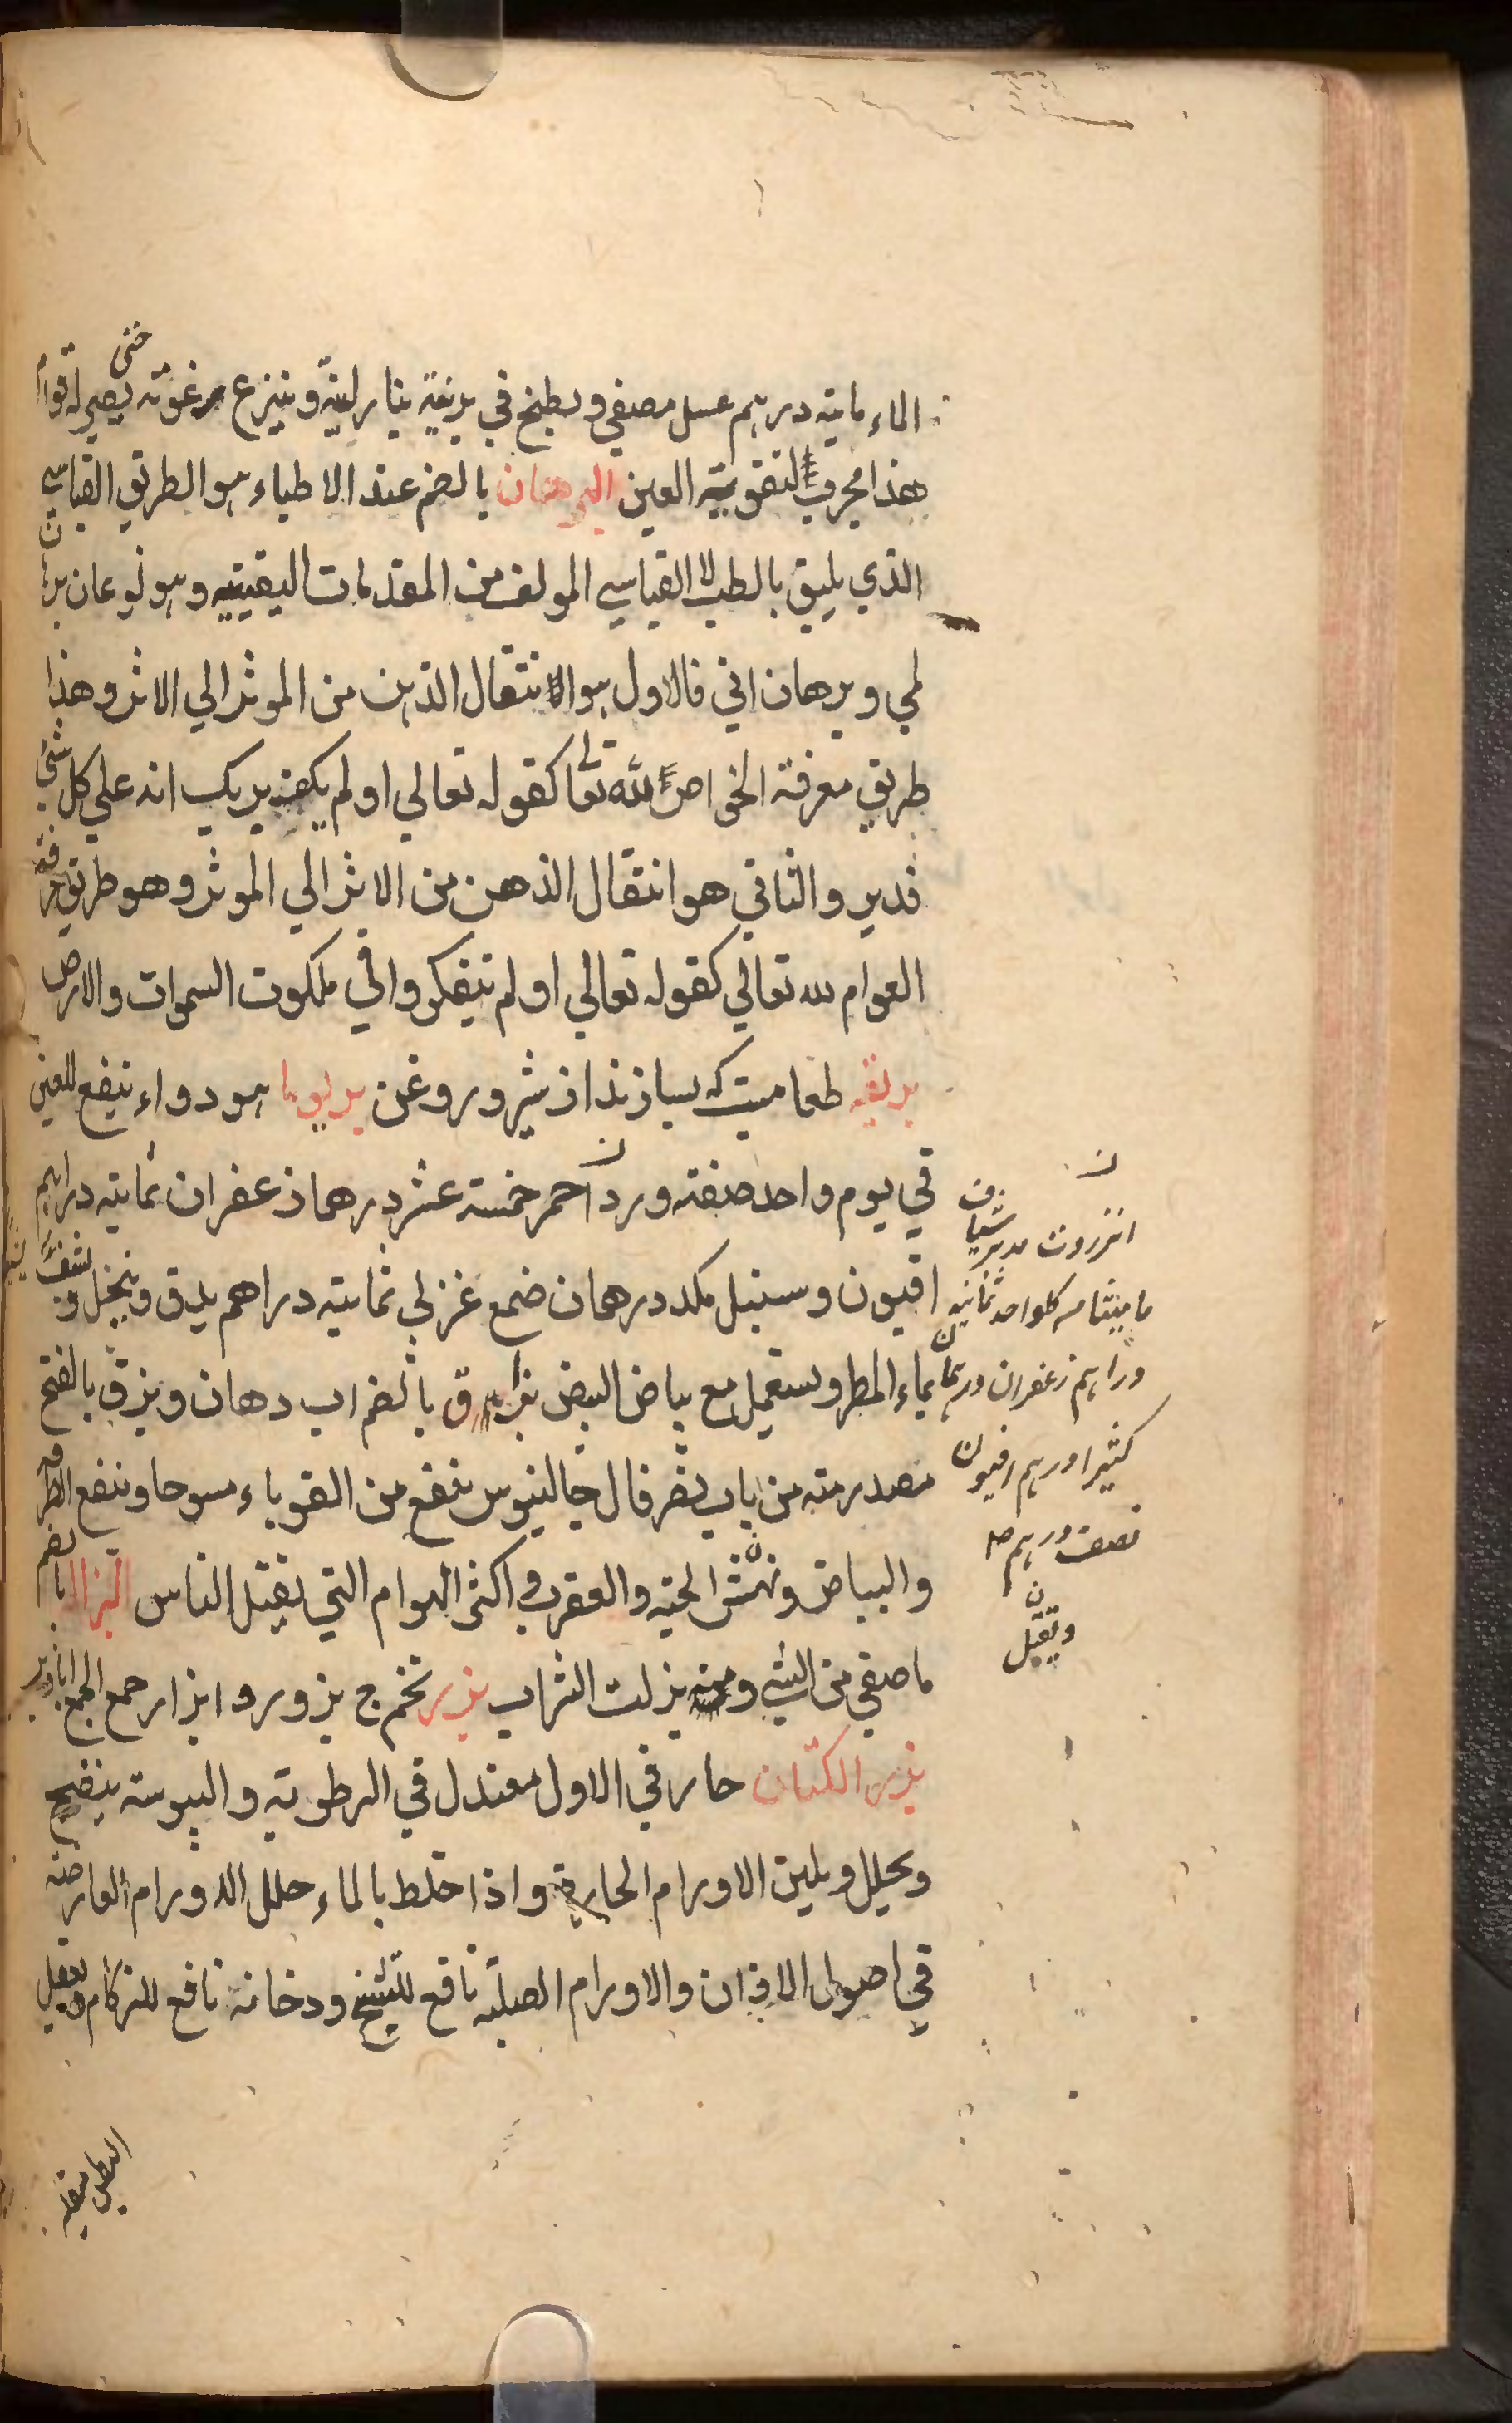 الماء ماية درهم عسل مصفي ويطبخ في برنية بنار لينة وينزع رغوته حتى يصير له قوام
هذا مجرب لتقوية العين البرهان بالضم عند الاطباء هو الطريق القياسي
الذي يليق بالطب لا القياسي المولف من المقدمات اليقينيه وهو نوعان برهان
لمي وبرهان اني فالاول هو الانتقال الذهن من الموثر الي الاثر وهذا
طريق معرفة الخواص لله تعالى كقوله تعالي اولم يكف بربك انه علي كل شئ
قدير والثاني هو انتقال الذهن من الاثر الي الموثر وهو طريق معرفة
العوام لله تعالي كقوله تعالي اولم يتفكروا في ملكوت السموات والارض
طعاميست كه بسازند از شير وروغن هو دواء ينفع للعين
في يوم واحد صفته ورد احمر خمسة عشر درهما زعفران ثمانية دراهم
افيون وسنبل مكد درهمان صمغ عربي ثمانية دراهم يدق وينخل
بماء المطر ويستعمل مع بياض البيض بزاق بالضم اب دهان وبزق بالفتح
مصدر منه من باب نصر قال جالينوس ينفع من القوباء مسوحا وينفع الطرفه
والبياض ونهش الحية والعقرب واكثر الهوام التي يقتل الناس البزال بالضم
ما صفي من الشي ومنه بزلت الشراب بزر تخم ج بزور وابزار جمع الجمع ابازير
بزر الكتان حار في الاول معتدل في الرطوبة واليبوسة ينضج
ويحلل ويلين الاورام الحارة واذا خلط بالماء حلل الاورام العارضه
في اصول الاذان والاورام الصلبة نافع للتشنج ودخانه نافع للزكام
انزروت مدبر شياف
ماميثا من كلواحد ثمانية
دراهم زعفران درهمان
كثيرا درهم افيون
نصف درهم
ويقبل
البطن